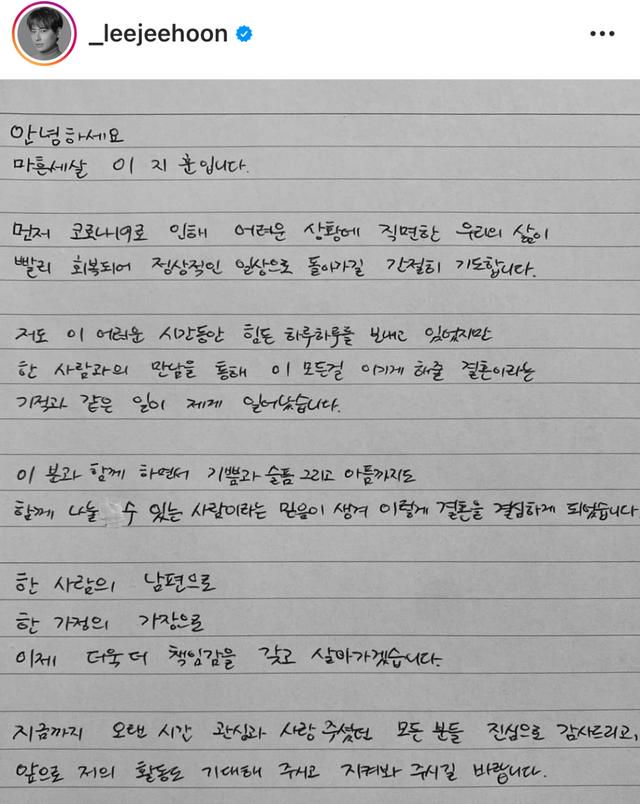 _leejeehoon
안녕하세요
마흔세살 이지훈입니다.
먼저 코로나19로 인해 어려운 상황에 직면한 우리의 삶이
빨리 회복되어 정상적인 일상으로 돌아가길 간절히 기도합니다.
저도 이 어려운 시간동안 힘든 하루하루를 보내고 있었지만
한 사람과의 만남을 통해 이 모든걸 이기게 해줄 결혼이라는
기적과 같은 일이 제게 일어났습니다.
이 분과 함께 하면서 기쁨과 슬픔 그리고 아픔까지도
함께 나눌 수 있는 사람이라는 믿음이 생겨 이렇게 결혼을 결심하게 되었습니다
한 사람의 남편으로
한 가정의 가장으로
이제 더욱 더 책임감을 갖고 살아가겠습니다.
지금까지 오랜 시간 관심과 사랑 주셨던 모든 분들 진심으로 감사드리고,
앞으로 저의 활동도 기대해 주시고 지켜봐 주시길 바랍니다.